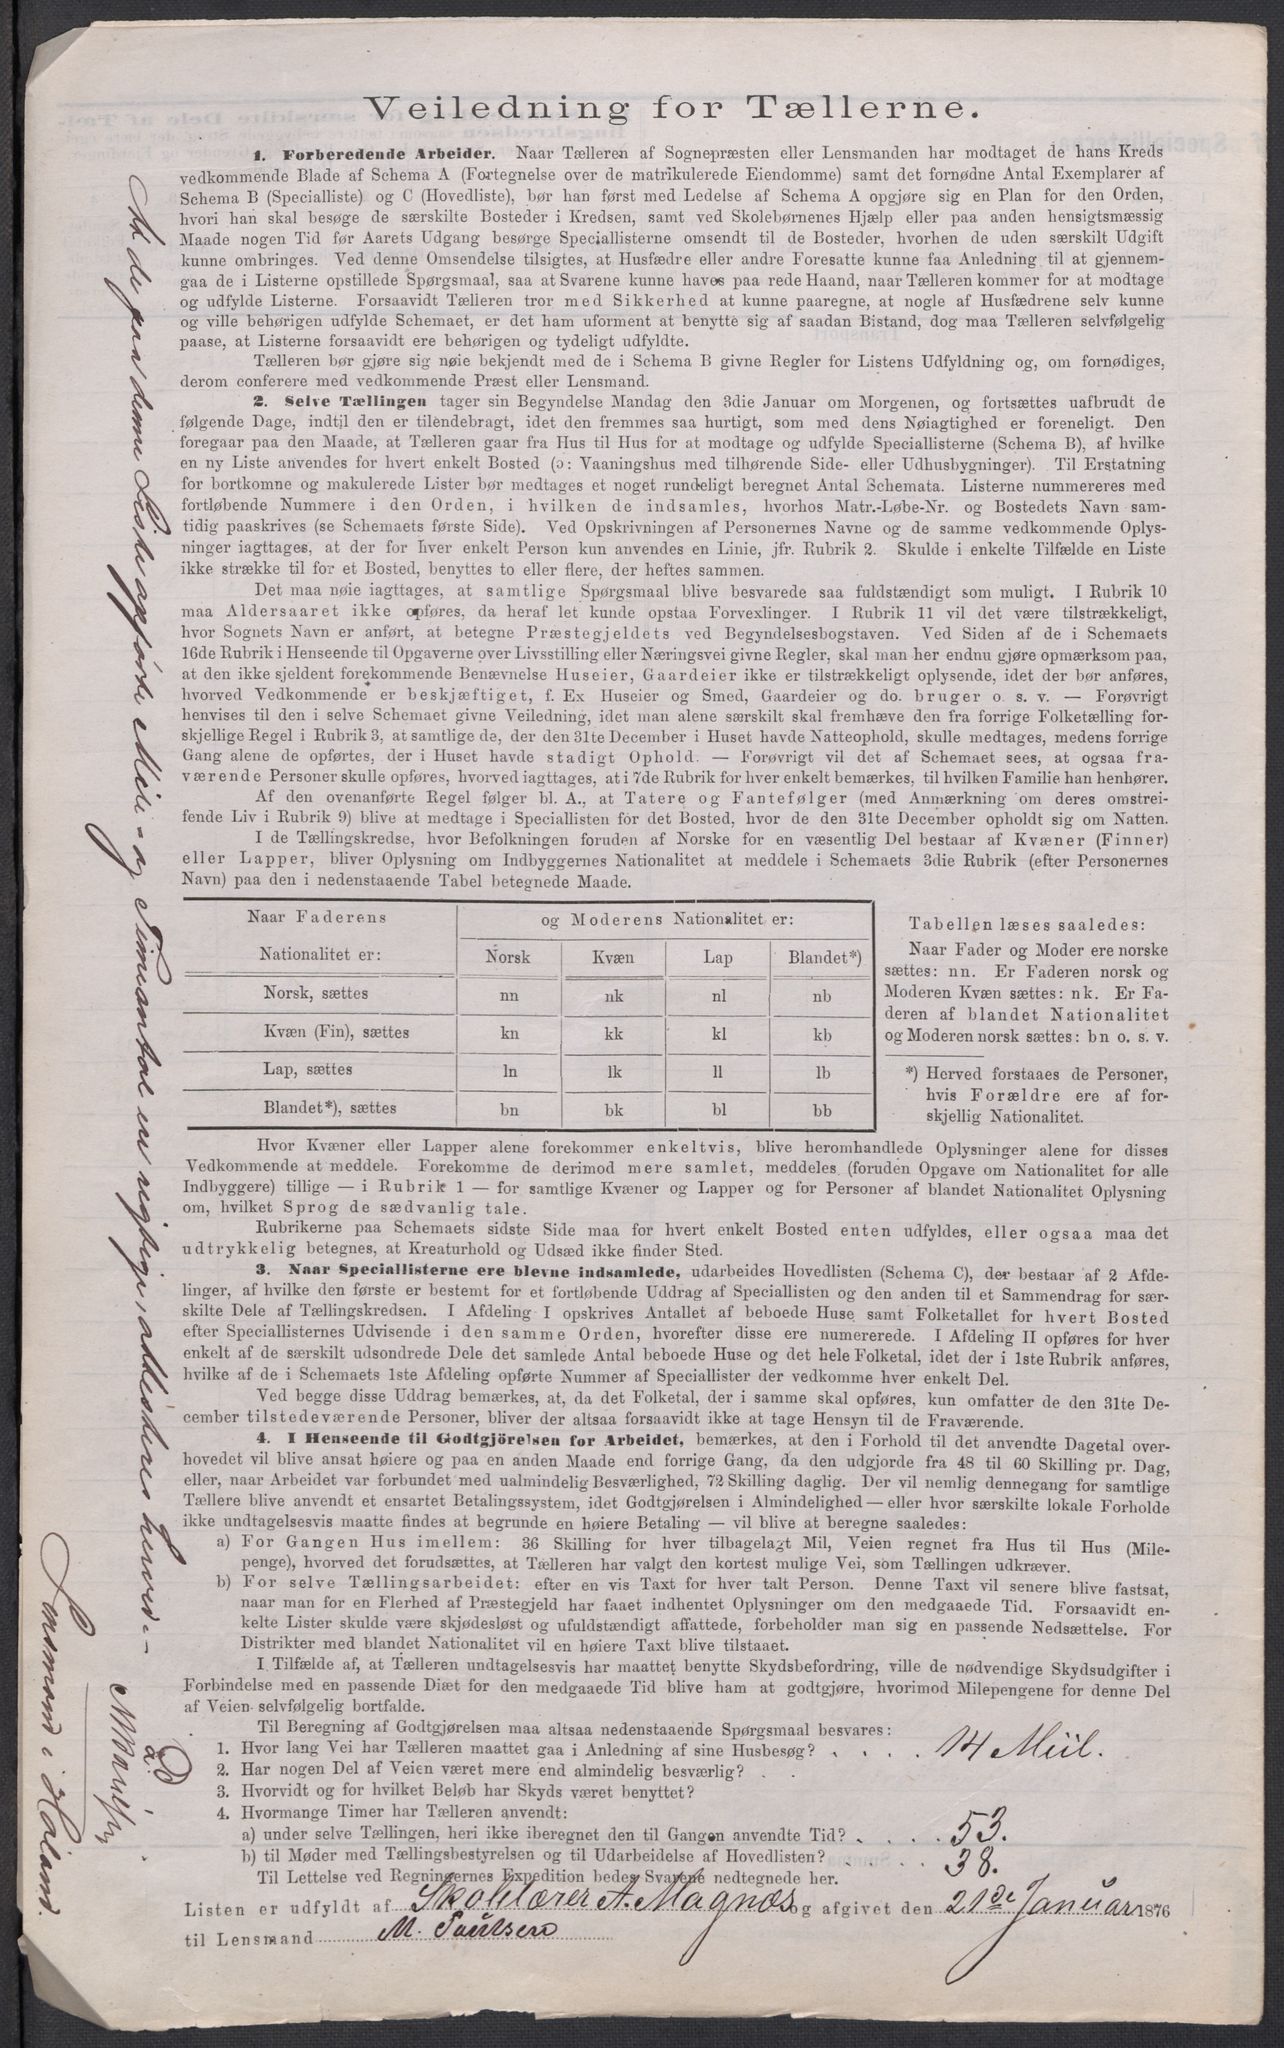 Veiledning for Tællerne.
1. Forberedende Arbeider. Naar Tælleren af Sognepræsten eller Lensmanden har modtaget de hans Kreds
vedkommende Blade af Schema A (Fortegnelse over de matrikulerede Eiendomme) samt det fornødne Antal Exemplarer af
Schema B (Specialliste) og C (Hovedliste), bør han først med Ledelse af Schema A opgjøre sig en Plan for den Orden,
hvori han skal besøge de særskilte Bosteder i Kredsen, samt ved Skolebørnenes Hjælp eller paa anden hensigtsmæssig
Maade nogen Tid før Aarets Udgang besørge Speciallisterne omsendt til de Bosteder, hvorhen de uden særskilt Udgift
kunne ombringes. Ved denne Omsendelse tilsigtes, at Husfædre eller andre Foresatte kunne faa Anledning til at gjennem-
gaa de i Listerne opstillede Spørgsmaal, saa at Svarene kunne haves paa rede Haand, naar Tælleren kommer for at modtage
og udfylde Listerne. Forsaavidt Tælleren tror med Sikkerhed at kunne paaregne, at nogle af Husfædrene selv kunne
og ville behørigen udfylde Schemaet, er det ham uforment at benytte sig af saadan Bistand, dog maa Tælleren selvfølgelig
paase, at Listerne forsaavidt ere behørigen og tydeligt udfyldte.
Tælleren bør gjøre sig nøie bekjendt med de i Schema B givne Regler for Listens Udfyldning og, om fornødiges,
derom conferere med vedkommende Præst eller Lensmand.
2. Selve Tællingen tager sin Begyndelse Mandag den 3die Januar om Morgenen, og fortsættes uafbrudt de
følgende Dage, indtil den er tilendebragt, idet den fremmes saa hurtigt, som med dens Nøiagtighed er foreneligt. Den
foregaar paa den Maade, at Tælleren gaar fra Hus til Hus for at modtage og udfylde Speciallisterne (Schema B), af hvilke
en ny Liste anvendes for hvert enkelt Bosted (ɔ: Vaaningshus med tilhørende Side- eller Udhusbygninger). Til Erstatning
for bortkomne og makulerede Lister bør medtages et noget rundeligt beregnet Antal Schemata. Listerne nummereres med
fortløbende Nummere i den Orden, i hvilken de indsamles, hvorhos Matr.-Løbe-Nr. og Bostedets Navn sam-
tidig paaskrives (se Schemaets første Side). Ved Opskrivningen af Personernes Navne og de samme vedkommende Oplys-
ninger iagttages, at der for hver enkelt Person kun anvendes en Linie, jfr. Rubrik 2. Skulde i enkelte Tilfælde en Liste
ikke strække til for et Bosted, benyttes to eller flere, der heftes sammen.
Det maa nøie iagttages, at samtlige Spørgsmaal blive besvarede saa fuldstændigt som muligt. I Rubrik 10
maa Aldersaaret ikke opføres, da heraf let kunde opstaa Forvexlinger. I Rubrik 11 vil det være tilstrækkeligt,
hvor Sognets Navn er anført, at betegne Præstegjeldets ved Begyndelsesbogstaven. Ved Siden af de i Schemaets
16de Rubrik i Henseende til Opgaverne over Livsstilling eller Næringsvei givne Regler, skal man her endnu gjøre opmærksom paa,
at den ikke sjeldent forekommende Benævnelse Huseier, Gaardeier ikke er tilstrækkeligt oplysende, idet der bør anføres,
hvorved Vedkommende er beskjæftiget, f. Ex Huseier og Smed, Gaardeier og do. bruger o. s. v. — Forøvrigt
henvises til den i selve Schemaet givne Veiledning, idet man alene særskilt skal fremhæve den fra forrige Folketælling for-
skjellige Regel i Rubrik 3, at samtlige de, der den 31te December i Huset havde Natteophold, skulle medtages, medens forrige
Gang alene de opførtes, der i Huset havde stadigt Ophold. — Forøvrigt vil det af Schemaet sees, at ogsaa fra-
værende Personer skulle opføres, hvorved iagttages, at i 7de Rubrik for hver enkelt bemærkes, til hvilken Familie han henhører.
Af den ovenanførte Regel følger bl. A., at Tatere og Fantefølger (med Anmærkning om deres omstrei-
fende Liv i Rubrik 9) blive at medtage i Speciallisten for det Bosted, hvor de den 31te December opholdt sig om Natten.
I de Tællingskredse, hvor Befolkningen foruden af Norske for en væsentlig Del bestaar af Kvæner (Finner)
eller Lapper, bliver Oplysning om Indbyggernes Nationalitet at meddele i Schemaets 3die Rubrik (efter Personernes
Navn) paa den i nedenstaaende Tabel betegnede Maade.
Naar Faderens og Moderens Nationalitet er:
Nationalitet er: Norsk Kvæn Lap Blandet*)
Norsk, sættes nn nk nl nb
Kvæn (Fin), sættes kn kk kl kb
Lap, sættes ln lk ll lb
Blandet*), sættes bn bk bl bb
Tabellen læses saaledes:
Naar Fader og Moder ere norske
sættes: nn. Er Faderen norsk og
Moderen Kvæn sættes: nk. Er Fa-
deren af blandet Nationalitet
og Moderen norsk sættes: bn o. s. v.
*) Herved forstaaes de Personer,
hvis Forældre ere af for-
skjellig Nationalitet.
Hvor Kvæner eller Lapper alene forekommer enkeltvis, blive heromhandlede Oplysninger alene for disses
Vedkommende at meddele. Forekomme de derimod mere samlet, meddeles (foruden Opgave om Nationalitet for alle
Indbyggere) tillige — i Rubrik 1 — for samtlige Kvæner og Lapper og for Personer af blandet Nationalitet Oplysning
om, hvilket Sprog de sædvanlig tale.
Rubrikerne paa Schemaets sidste Side maa for hvert enkelt Bosted enten udfyldes, eller ogsaa maa det
udtrykkelig betegnes, at Kreaturhold og Udsæd ikke finder Sted.
3. Naar Speciallisterne ere blevne indsamlede, udarbeides Hovedlisten (Schema C), der bestaar af 2 Afde-
linger, af hvilke den første er bestemt for et fortløbende Uddrag af Speciallisten og den anden til et Sammendrag for sær-
skilte Dele af Tællingskredsen. I Afdeling I opskrives Antallet af beboede Huse samt Folketallet for hvert Bosted
efter Speciallisternes Udvisende i den samme Orden, hvorefter disse ere numererede. I Afdeling II opføres for hver
enkelt af de særskilt udsondrede Dele det samlede Antal beboede Huse og det hele Folketal, idet der i 1ste Rubrik anføres,
hvilke af de i Schemaets 1ste Afdeling opførte Nummer af Speciallister der vedkomme hver enkelt Del.
Ved begge disse Uddrag bemærkes, at, da det Folketal, der i samme skal opføres, kun omfatter de den 31te De-
cember tilstedeværende Personer, bliver der altsaa forsaavidt ikke at tage Hensyn til de Fraværende.
4. I Henseende til Godtgjörelsen for Arbeidet, bemærkes, at den i Forhold til det anvendte Dagetal over-
hovedet vil blive ansat høiere og paa en anden Maade end forrige Gang, da den udgjorde fra 48 til 60 Skilling pr. Dag,
eller, naar Arbeidet var forbundet med ualmindelig Besværlighed, 72 Skilling daglig. Der vil nemlig dennegang for samtlige
Tællere blive anvendt et ensartet Betalingssystem, idet Godtgjørelsen i Almindelighed — eller hvor særskilte lokale Forholde
ikke undtagelsesvis maatte findes at begrunde en høiere Betaling — vil blive at beregne saaledes:
a) For Gangen Hus imellem: 36 Skilling for hver tilbagelagt Mil, Veien regnet fra Hus til Hus (Mile-
penge), hvorved det forudsættes, at Tælleren har valgt den kortest mulige Vei, som Tællingen udkræver.
b) For selve Tællingsarbeidet: efter en vis Taxt for hver talt Person. Denne Taxt vil senere blive fastsat,
naar man for en Flerhed af Præstegjeld har faaet indhentet Oplysninger om den medgaaede Tid. Forsaavidt en-
kelte Lister skulde være skjødesløst og ufuldstændigt affattede, forbeholder man sig en passende Nedsættelse. For
Distrikter med blandet Nationalitet vil en høiere Taxt blive tilstaaet.
I Tilfælde af, at Tælleren undtagelsesvis har maattet benytte Skydsbefordring, ville de nødvendige Skydsudgifter i
Forbindelse med en passende Diæt for den medgaaede Tid blive ham at godtgjøre, hvorimod Milepengene for denne Del
af Veien selvfølgelig bortfalde.
Til Beregning af Godtgjørelsen maa altsaa nedenstaaende Spørgsmaal besvares:
1. Hvor lang Vei har Tælleren maattet gaa i Anledning af sine Husbesøg? . . . . 14 Miil.
2. Har nogen Del af Veien været mere end almindelig besværlig? . .
3. Hvorvidt og for hvilket Beløb har Skyds været benyttet?
4. Hvormange Timer har Tælleren anvendt:
a) under selve Tællingen, heri ikke iberegnet den til Gangen anvendte Tid? . . . . 53.
b) til Møder med Tællingsbestyrelsen og til Udarbeidelse af Hovedlisten? . . . . 38.
Til Lettelse ved Regningernes Expedition bedes Svarene nedtegnede her.
Listen er udfyldt af Skolelærer A. Magnæs og afgivet den 21de Januar 1876
til Lensmand M. Paulsen
At de paa denne Liste opførte Mile- og Timeantal ere rigtige, attesteres herved.-
Lensmand i Høland.